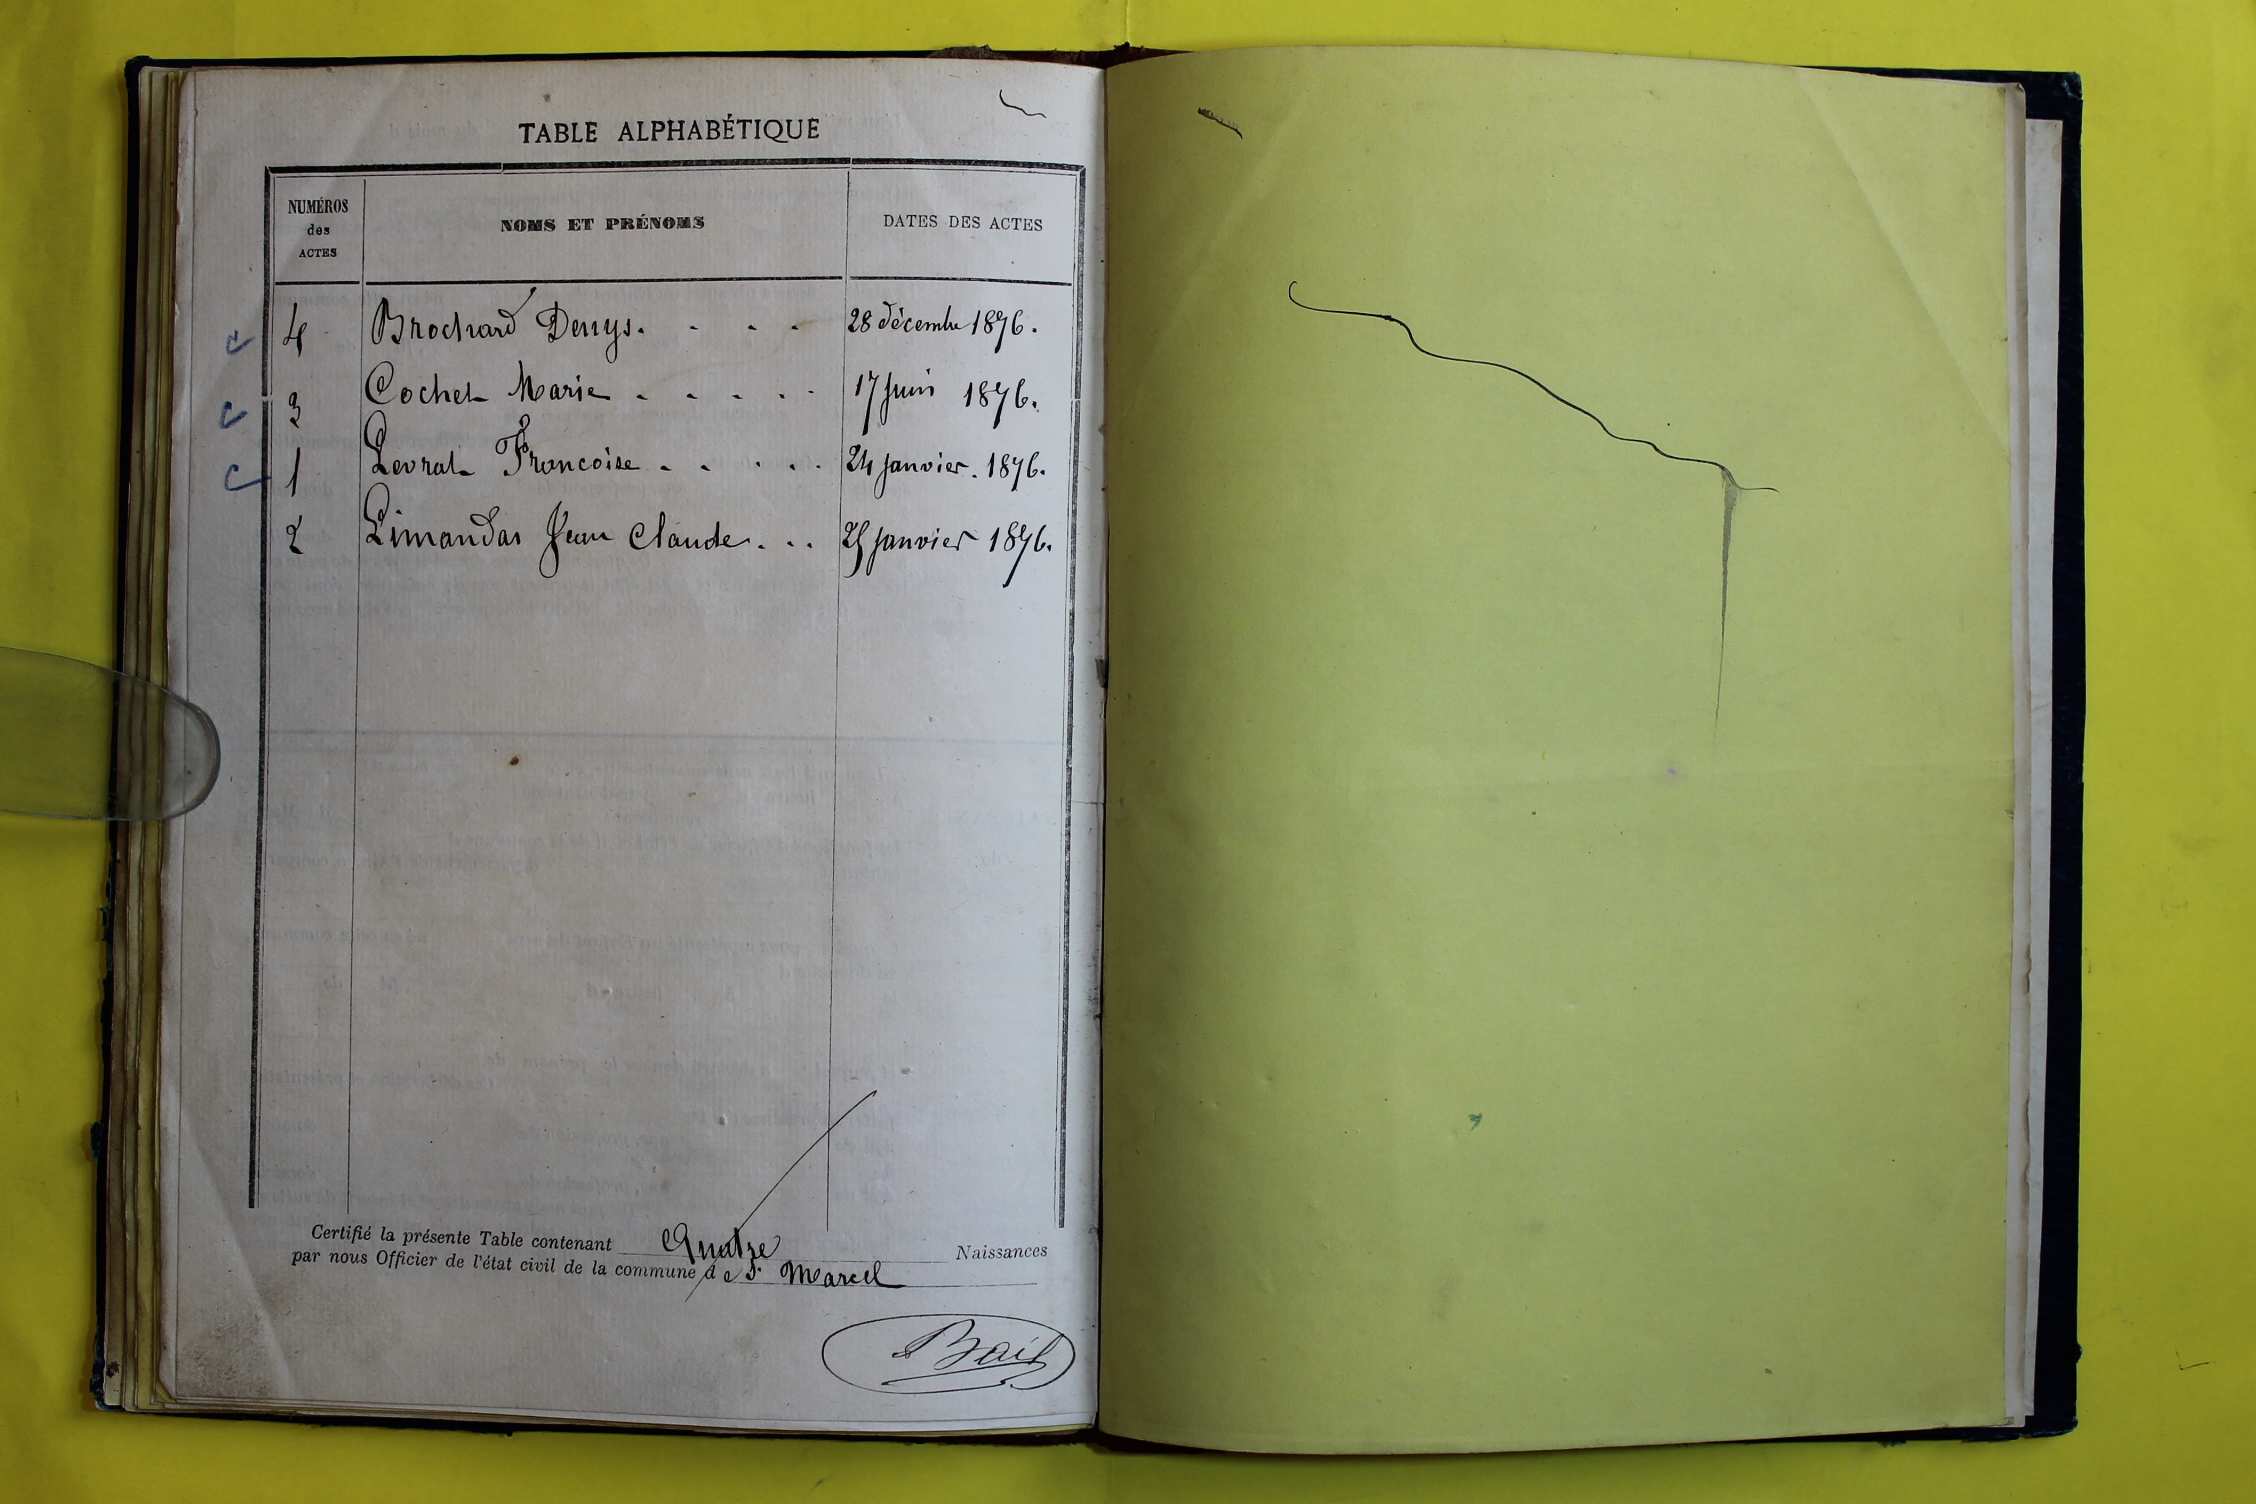 TABLE ALPHABÉTIQUE
NUMÉROS des ACTES NOMS ET PRÉNOMS DATES DES ACTES
4 Brochard Denys. - - - 28 décembre 1876.
3 Cochet Marie - - - - - 17 Juin 1876.
1 Levrat Francoise - - - - 24 Janvier. 1876.
2 Limandas Jean Claude. . . 25 Janvier 1876.
Certifié la présente Table contenant Quatre Naissances
par nous Officier de l'état civil de la commune de St Marcel